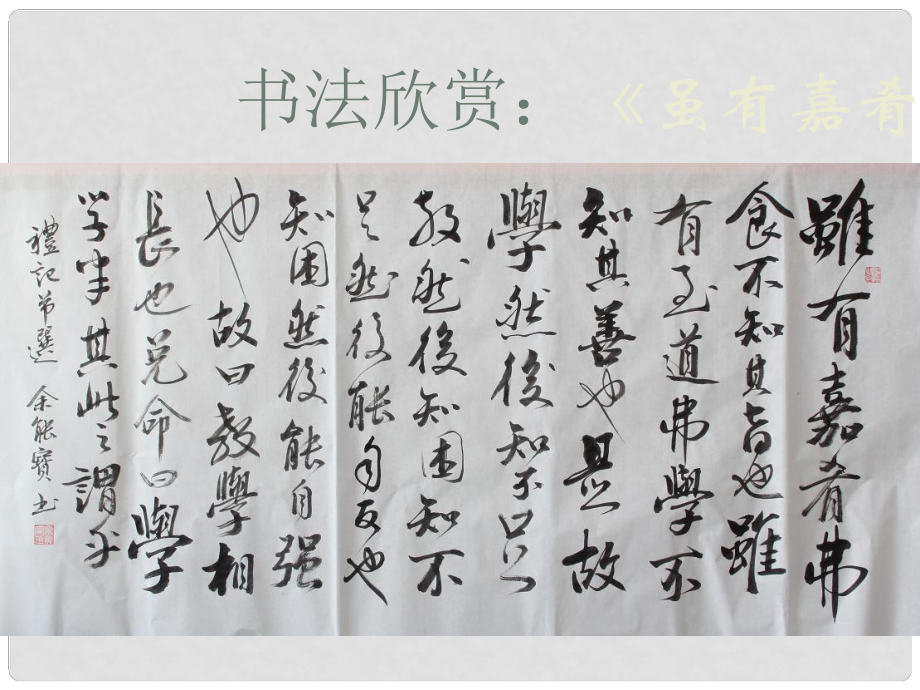 书法欣赏： 《虽有嘉肴
雖有嘉肴弗
食不知其旨也雖
有至道弗學不
知其善也是故
學然後知不足
教然後知困知不
足然後能自反也
知困然後能自强
也故曰教學相
長也兑命曰學
学半其此之謂乎
禮記节選 余能寶书